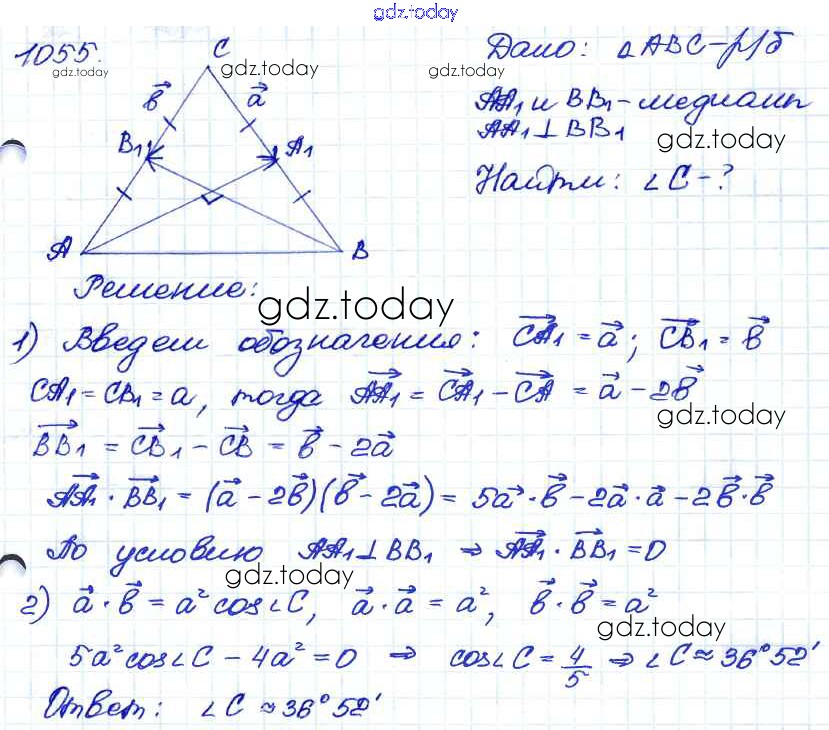 gdz.today
1055.
gdz.today
C
gdz.today
Дано: △ABC-р/б
gdz.today
b⃗
a⃗
AA₁ и BB₁-медианы
B₁
A₁
AA₁⊥BB₁
gdz.today
Найти: ∠C-?
A
B
Решение:
gdz.today
1) Введем обозначения: CA₁⃗ = a⃗; CB₁⃗ = b⃗
CA₁=CB₁=a, тогда AA₁⃗ = CA₁⃗ - CA⃗ = a⃗ - 2b⃗
gdz.today
BB₁⃗ = CB₁⃗ - CB⃗ = b⃗ - 2a⃗
AA₁⃗ · BB₁⃗ = (a⃗ - 2b⃗)(b⃗ - 2a⃗) = 5a⃗·b⃗ - 2a⃗·a⃗ - 2b⃗·b⃗
По условию AA₁⊥BB₁ ⇒ AA₁⃗ · BB₁⃗ = 0
gdz.today
2) a⃗ · b⃗ = a² cos∠C, a⃗ · a⃗ = a², b⃗ · b⃗ = a²
gdz.today
5a² cos∠C - 4a² = 0 ⇒ cos∠C = 4/5 ⇒ ∠C ≈ 36°52'
Ответ: ∠C ≈ 36°52'